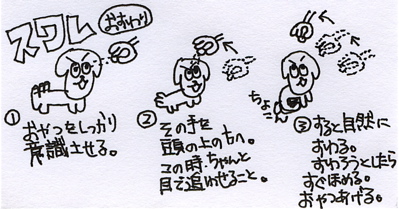 スワレ
おすわり
① おやつをしっかり
意識させる。
② その手を
頭の上の方へ。
この時、ちゃんと
目で追わせること。
ちょこ
③ すると自然に
すわる。
すわろうとしたら
すぐほめる。
おやつあげる。